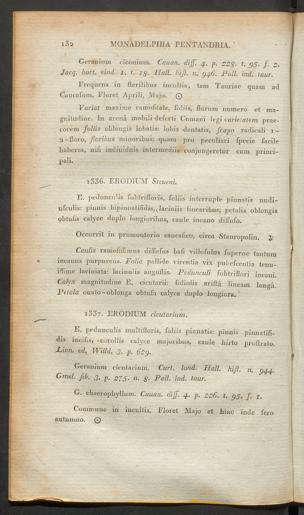 132 MONADELPHIA PENTANDRIA.
Geranium ciconium. Cauan. diss. 4. p. 228. t. 95. f. 2.
Jacq. hort. vind. 1. t. 18. Hall. hist. n. 946. Pall. ind. taur.
Frequens in sterilibus incultis, tam Tauriae quam ad
Caucasum. Floret Aprili, Majo. ☉
Variat maxime ramositate, foliis, florum numero et ma-
gnitudine. In arena mobili deserti Cumani legi varietatem prae-
cocem foliis oblongis lobatis: lobis dentatis, scapo radicali 1-
2-floro, floribus minoribus; quam pro peculiari specie facile
haberes, nisi individuis intermediis conjungeretur cum princi-
pali.
1336. ERODIUM Steueni.
E. pedunculis subtrifloris, foliis interrupte pinnatis nudi-
usculis: pinnis bipinnatifidis, laciniis linearibus; petalis oblongis
obtusis calyce duplo longioribus, caule incano diffuso.
Occurrit in promontorio caucasico, circa Stauropolin. ♃
Caulis ramosissimus diffusus basi villosulus superne tantum
incanus purpureus. Folia pallide virentia vix pubescentia tenu-
issime laciniata: laciniis angustis. Pedunculi subtriflori incani.
Calyx magnitudine E. cicutarii: foliolis arista incana longa.
Petala ouato-oblonga obtusa calyce duplo longiora.
1337. ERODIUM cicutarium.
E. pedunculis multifloris, foliis pinnatis: pinnis pinnatifi-
dis incisis, corollis calyce majoribus, caule hirto prostrato.
Linn. ed. Willd. 3. p. 629.
Geranium cicutarium. Curt. lond. Hall. hist. n. 944.
Gmel. sib. 3. p. 275. n. 8. Pall. ind. taur.
G. chaerophyllum. Cauan. diss. 4. p. 226. t. 95. f. 1.
Commune in incultis. Floret Majo et hinc inde sero
autumno. ☉